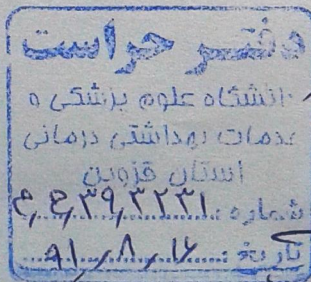 دفتر حراست
دانشگاه علوم پزشکی و
خدمات بهداشتی درمانی
استان قزوین
شماره: ۳۹٫۳۲۳۱
تاریخ: ۹۱٫۸٫۱۶